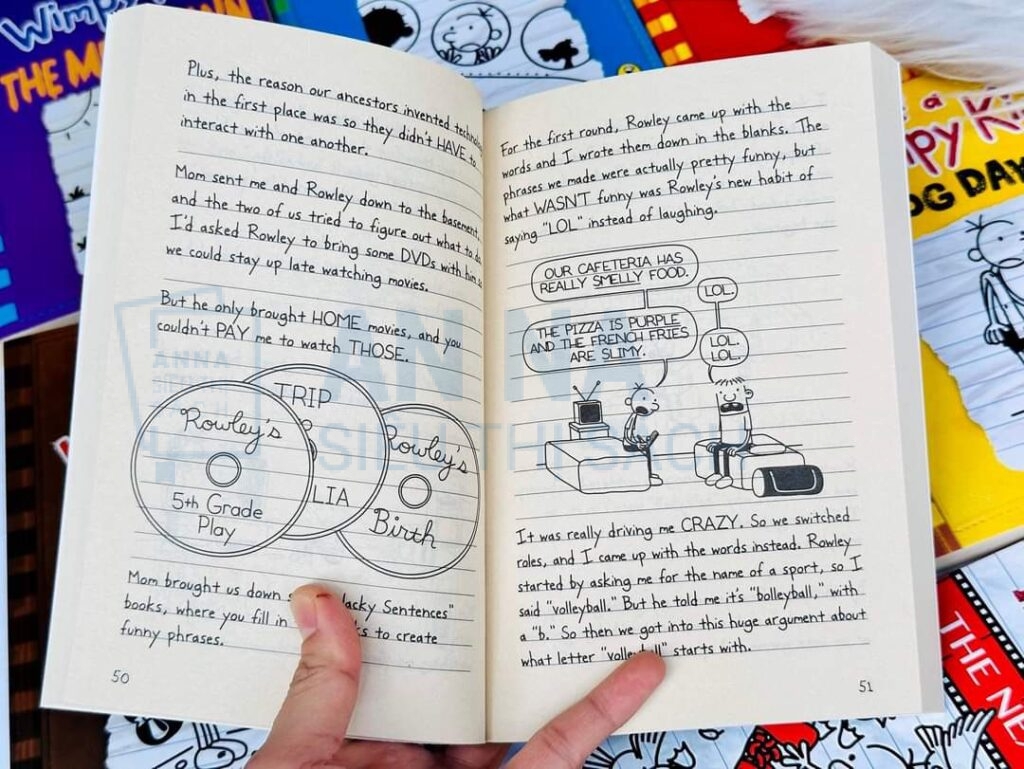 Wimpy
THE M
OWN
a
py Ki
OG DAY
Plus, the reason our ancestors invented
in the first place was so they didn't HAVE to
interact with one another.
Mom sent me and Rowley down to the basement,
and the two of us tried to figure out what to
I'd asked Rowley to bring some DVDs with him
we could stay up late watching movies.
But he only brought HOME movies, and you
couldn't PAY me to watch THOSE.
Rowley's
5th Grade
Play
TRIP
LIA
Rowley's
Birth
Mom brought us down
acky Sentences"
books, where you fill in
ks to create
funny phrases.
50
For the first round, Rowley came up with the
words and I wrote them down in the blanks. The
phrases we made were actually pretty funny, but
what WASN'T funny was Rowley's new habit of
saying "LOL" instead of laughing.
OUR CAFETERIA HAS
REALLY SMELLY FOOD.
LOL.
THE PIZZA IS PURPLE
AND THE FRENCH FRIES
ARE SLIMY.
LOL.
LOL.
It was really driving me CRAZY. So we switched
roles, and I came up with the words instead. Rowley
started by asking me for the name of a sport, so I
said "volleyball." But he told me it's "bolleyball," with
a "b." So then we got into this huge argument about
what letter "volleyball" starts with.
51
THE NE
AN NA
SIEU THI SACH